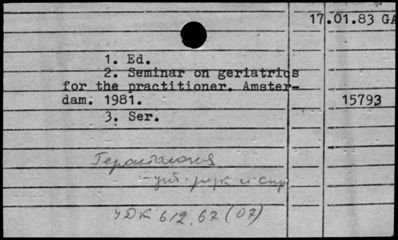 17.01.83 GA
1. Ed.
2. Seminar on geriatrics
for the practitioner. Amster-
dam. 1981. 15793
3. Ser.
Геронтология
УДК 612.67(07)